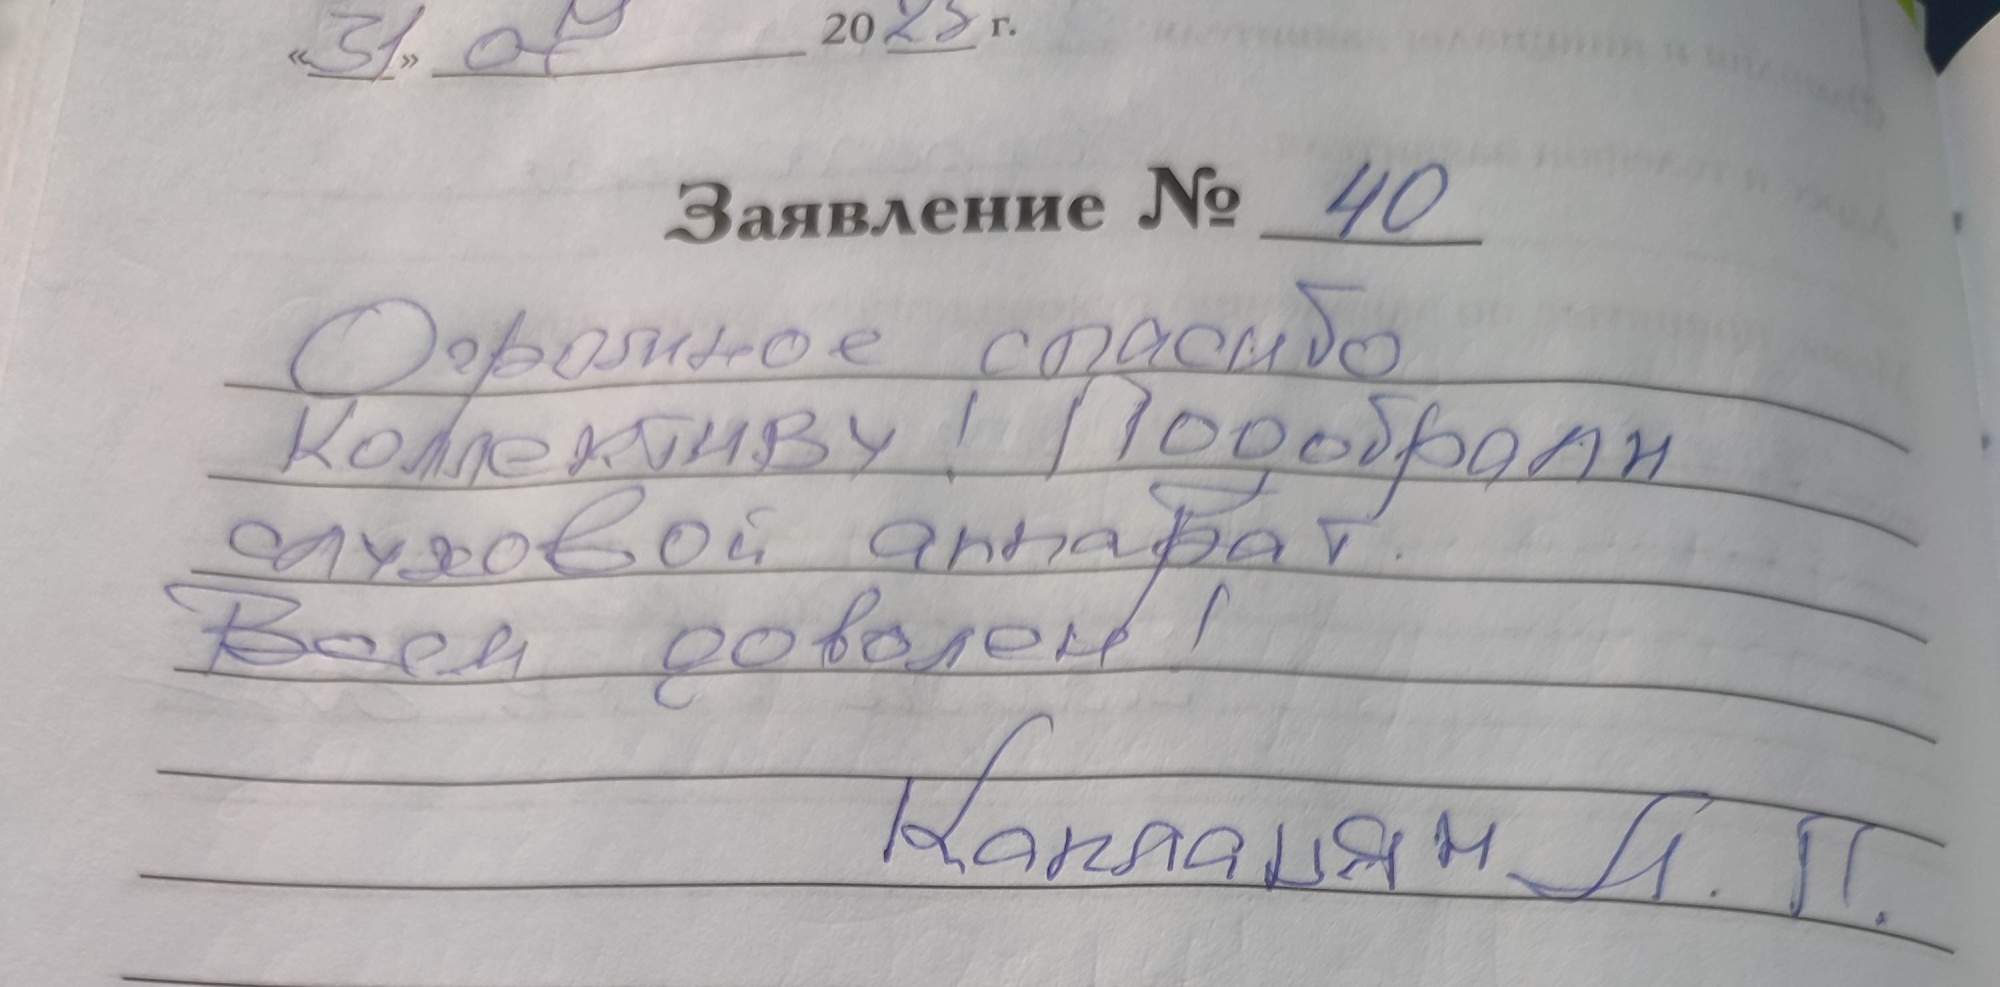 «31» 07 2023 г.
Заявление № 40
Огромное спасибо
Коллективу! Подобрали
слуховой аппарат.
Всем доволен!
Капланян А. П.